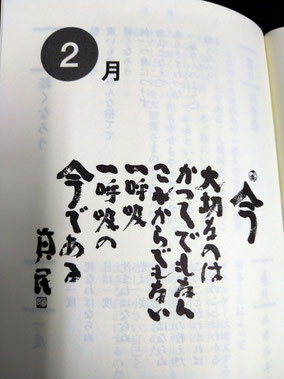 2月
今
大切なのは
かつてでもなく
これからでもない
一呼吸
一呼吸の
今である
真民